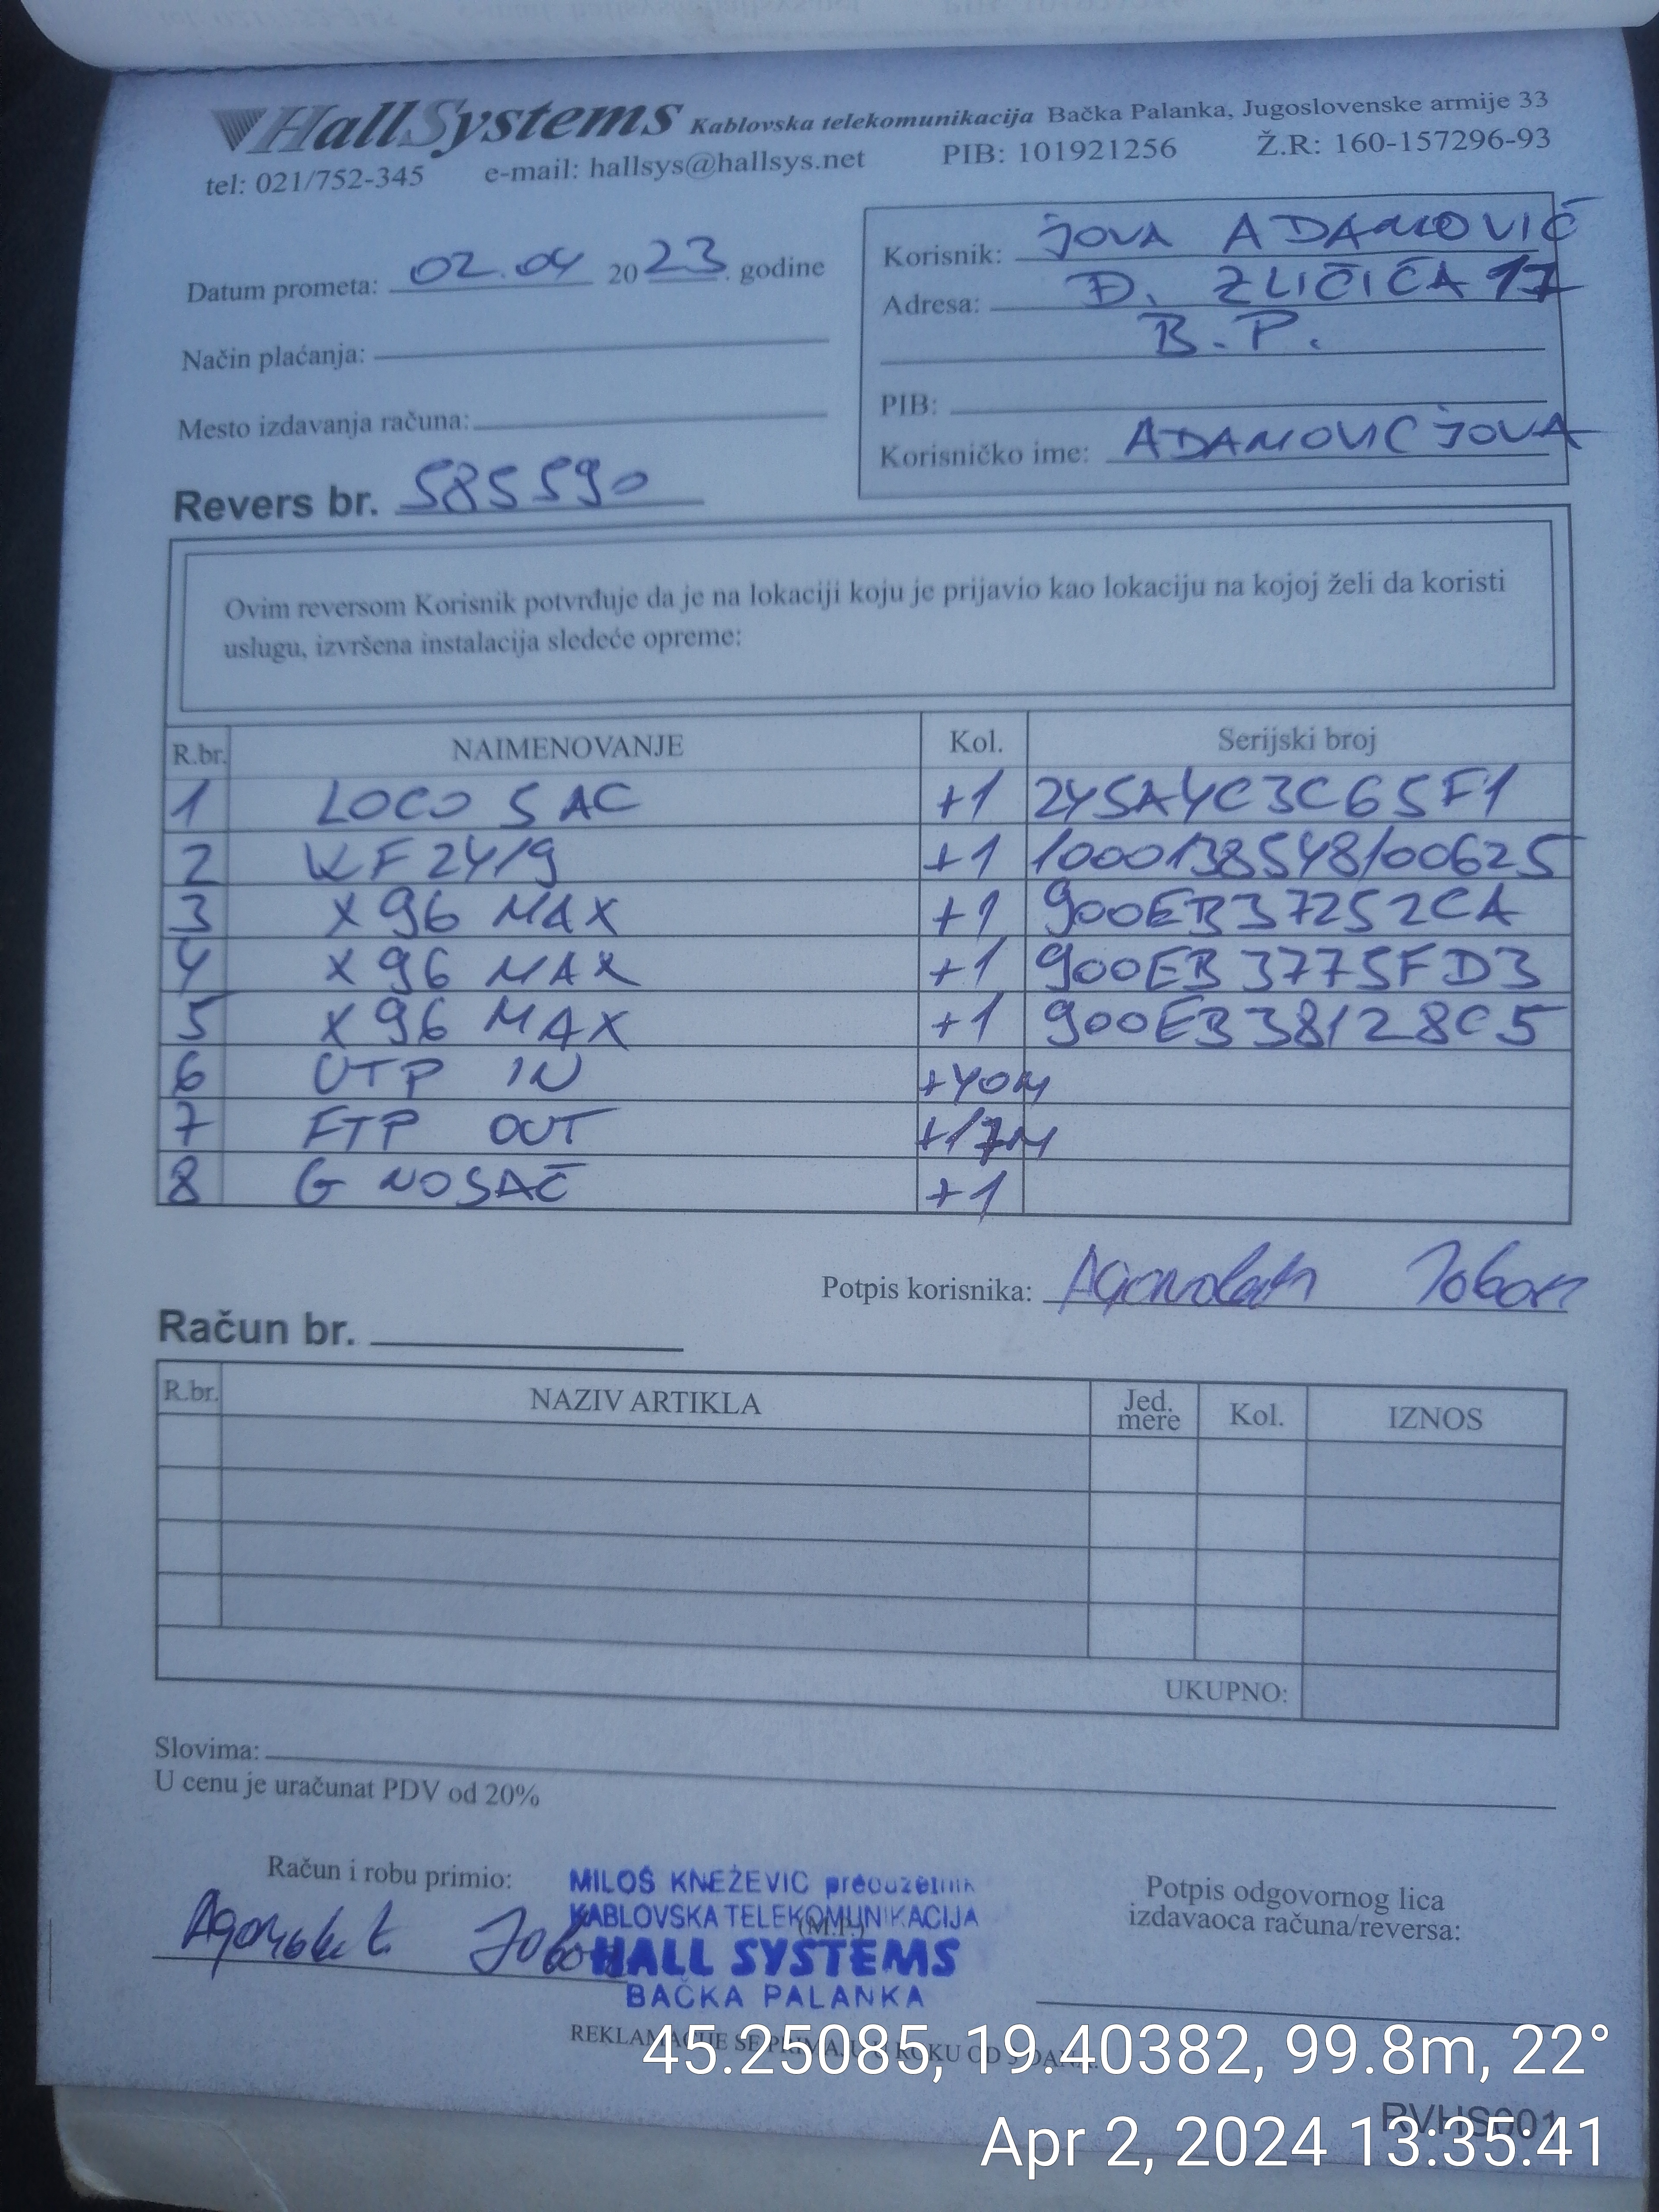 HallSystems Kablovska telekomunikacija Bačka Palanka, Jugoslovenske armije 33
tel: 021/752-345 e-mail: hallsys@hallsys.net PIB: 101921256 Ž.R: 160-157296-93
Datum prometa: 02.04 2023. godine
Način plaćanja:
Mesto izdavanja računa:
Revers br. 585590
Korisnik: JOVA ADAMOVIĆ
Adresa: Đ. ZLIČIĆA 17
B.P.
PIB:
Korisničko ime: ADAMOVICJOVA
Ovim reversom Korisnik potvrđuje da je na lokaciji koju je prijavio kao lokaciju na kojoj želi da koristi
uslugu, izvršena instalacija sledeće opreme:
R.br. NAIMENOVANJE Kol. Serijski broj
1 LOCO 5 AC +1 245A4C3C65F1
2 KF24/9 +1 1000138548/00625
3 X96 MAX +1 900EB37252CA
4 X96 MAX +1 900EB3775FD3
5 X96 MAX +1 900EB38128C5
6 UTP IN +40M
7 FTP OUT +17M
8 G NOSAČ +1
Potpis korisnika:
Račun br.
R.br. NAZIV ARTIKLA Jed. mere Kol. IZNOS
UKUPNO:
Slovima:
U cenu je uračunat PDV od 20%
Račun i robu primio:
MILOŠ KNEŽEVIĆ preduzetnik
KABLOVSKA TELEKOMUNIKACIJA
(M.P.)
HALL SYSTEMS
BAČKA PALANKA
Potpis odgovornog lica
izdavaoca računa/reversa:
REKLAMACIJE SE PRIMAJU U ROKU OD 3 DANA.
45.25085, 19.40382, 99.8m, 22°
RVHS001
Apr 2, 2024 13:35:41